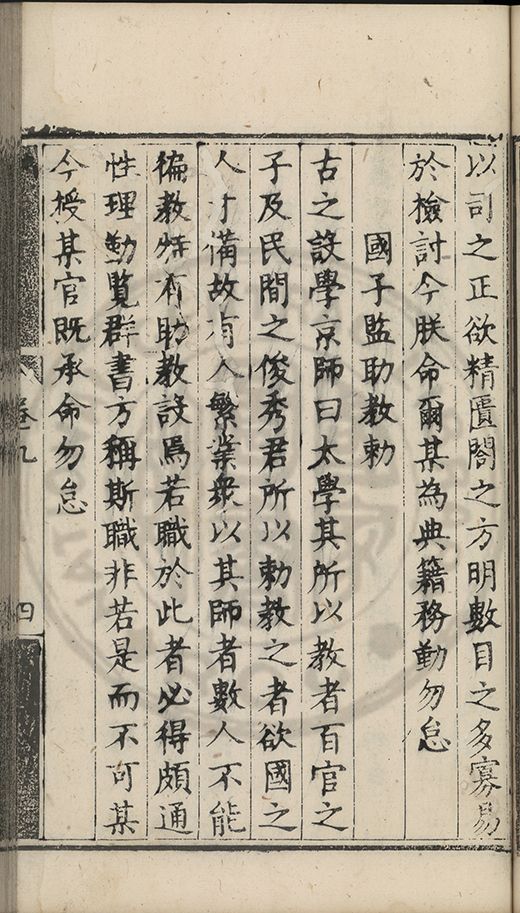 以司之正欲精匱閣之方明數目之多寡易
於檢討今朕命爾某為典籍務勤勿怠
國子監助教勅
古之設學京師曰太學其所以教者百官之
子及民間之俊秀君所以勅教之者欲國之
人才備故有人繁業衆以其師者數人不能
徧教妳有助教設焉若職於此者必得頗通
性理勤覧群書方稱斯職非若是而不可某
今授某官既承命勿怠
卷九
四